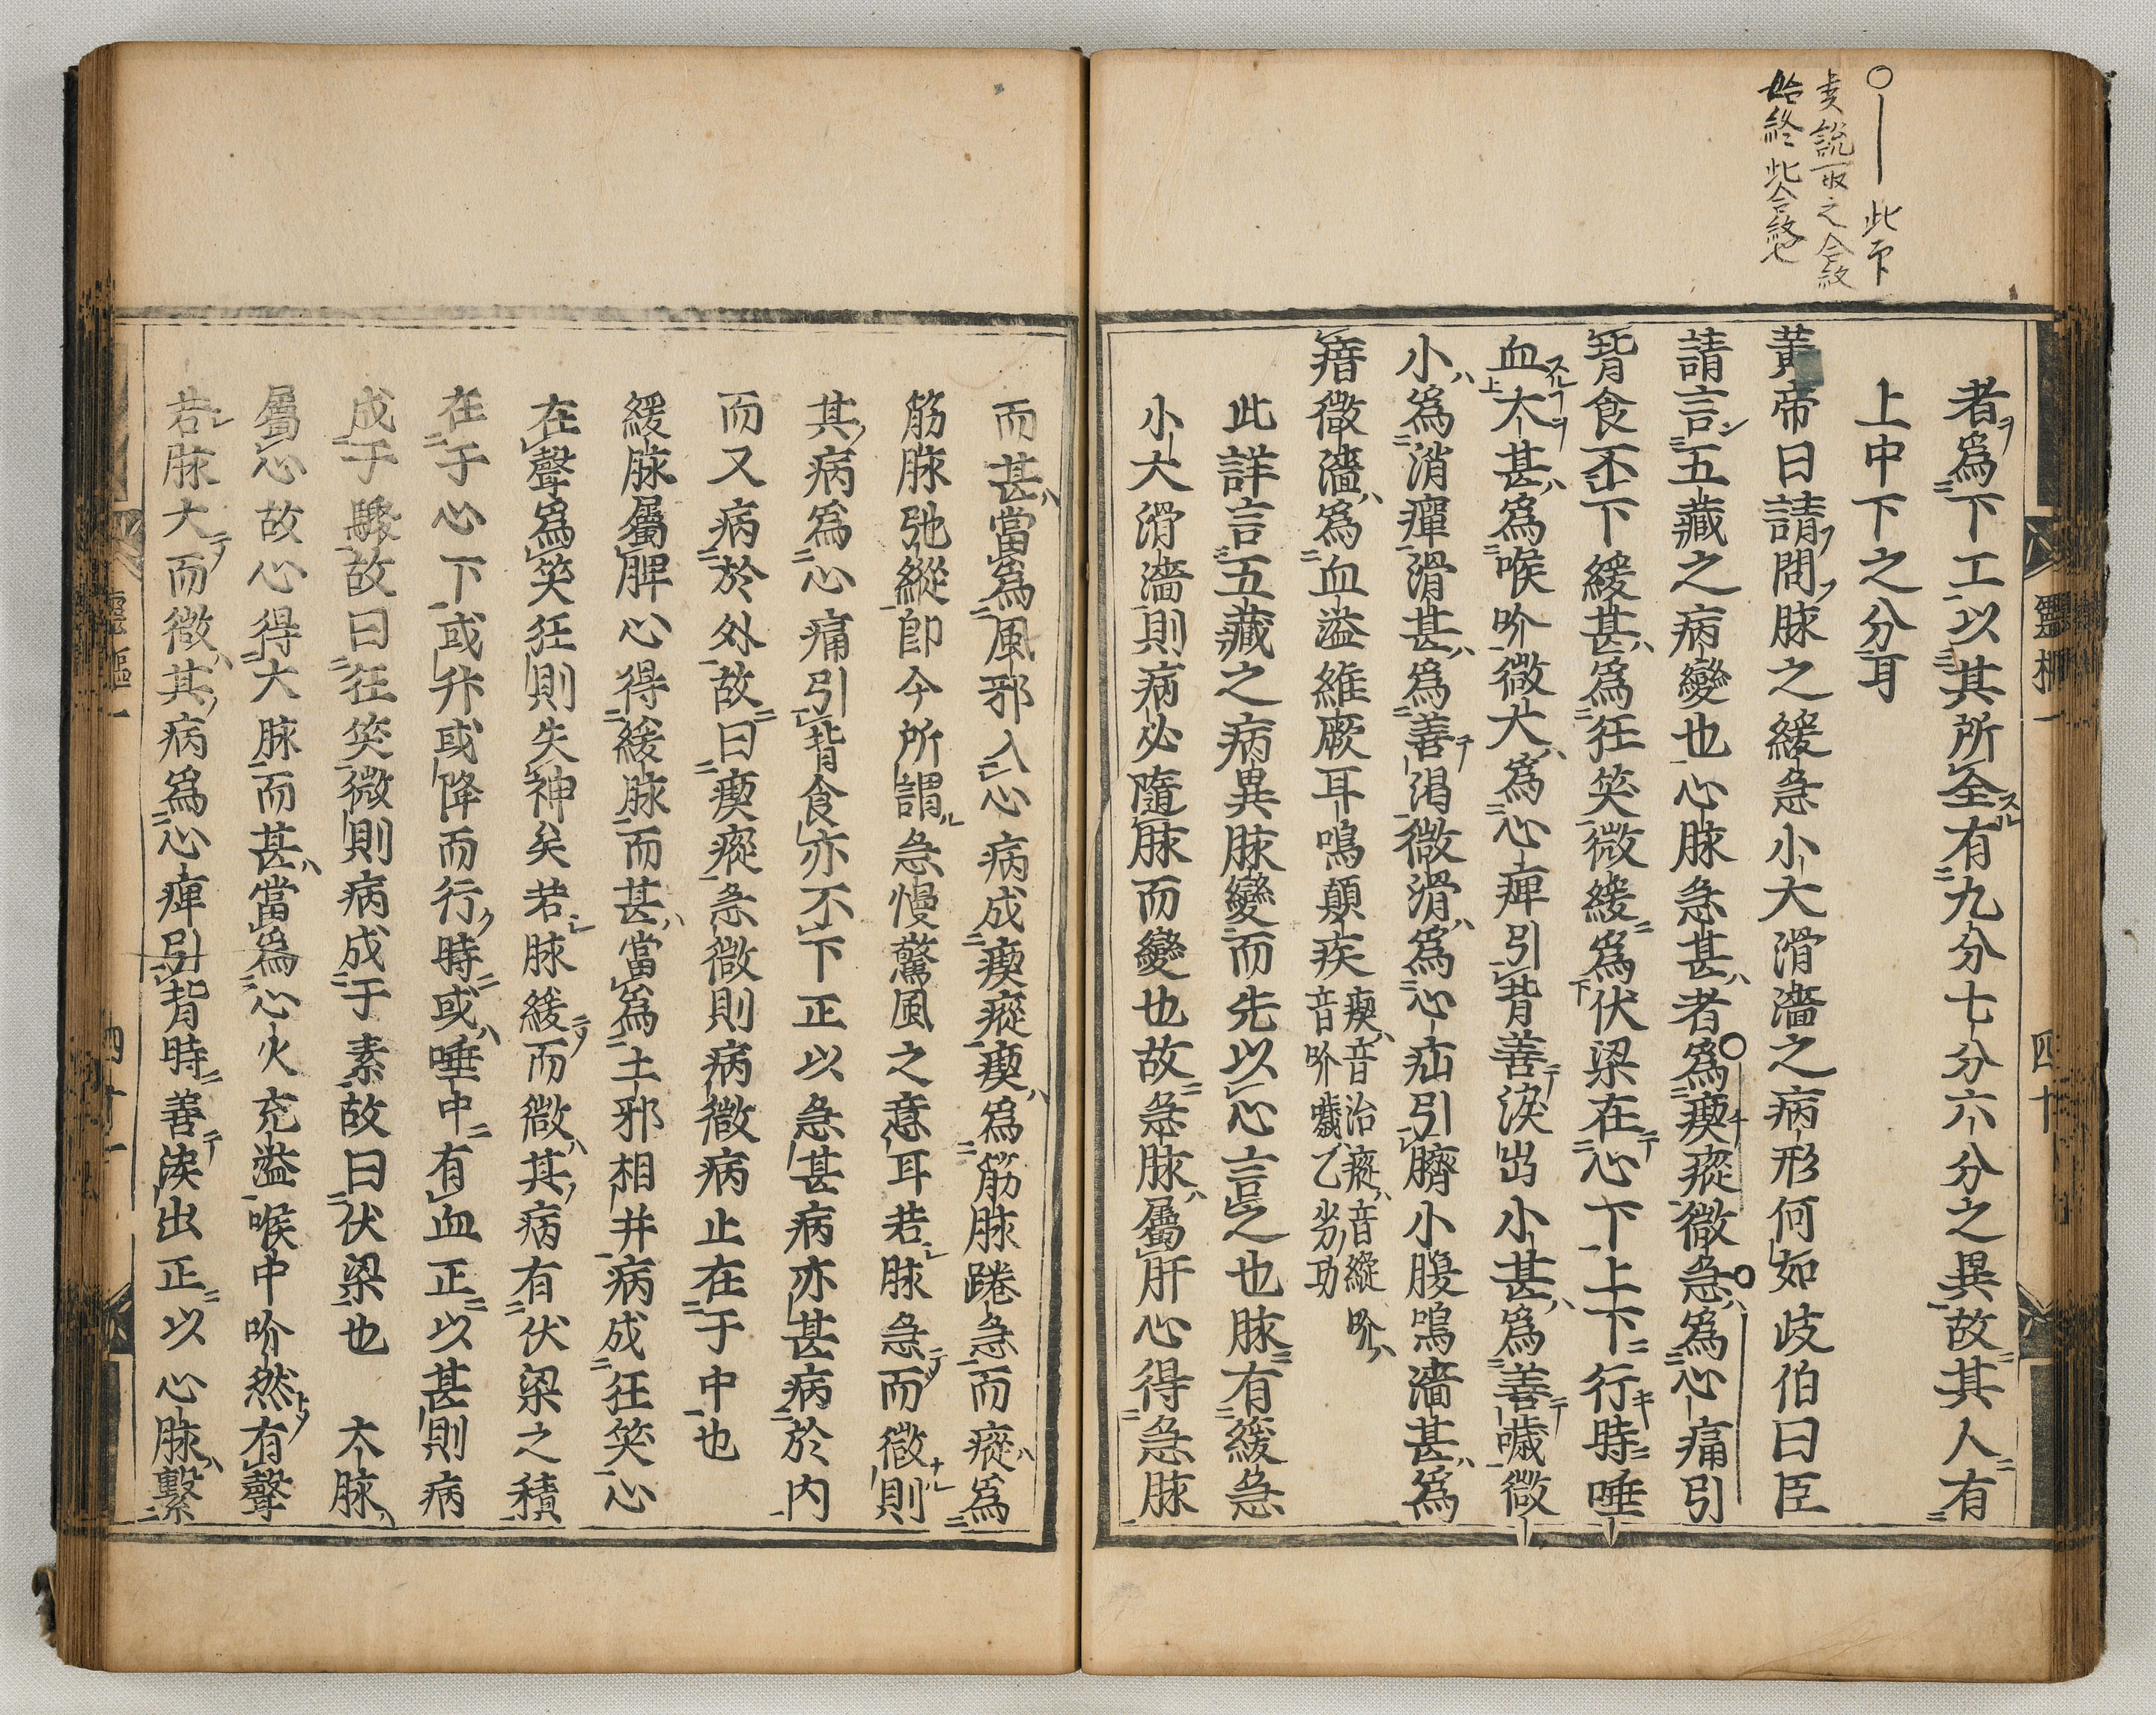 者爲下工以其所全有九分七分六分之異故其人有
上中下之分耳
黃帝曰請問脉之緩急小大滑濇之病形何如岐伯曰臣
請言五藏之病變也心脉急甚者爲瘈瘲微急爲心痛引
背食不下緩甚爲狂笑微緩爲伏梁在心下上下行時唾
血大甚爲喉吤微大爲心痺引背善淚出小甚爲善噦微
小爲消癉滑甚爲善渴微滑爲心疝引臍小腹鳴濇甚爲
瘖微濇爲血溢維厥耳鳴顛疾
瘈音治瘲音縱吤
音吤噦乙劣功
此詳言五藏之病異脉變而先以心言之也脉有緩急
小大滑濇則病必隨脉而變也故急脉屬肝心得急脉
而甚當爲風邪入心病成瘈瘲瘈爲筋脉踡急而瘲爲
筋脉弛縱卽今所謂急慢驚風之意耳若脉急而微則
其病爲心痛引背食亦不下正以急甚病亦甚病於內
而又病於外故曰瘈瘲急微則病微病止在于中也
緩脉屬脾心得緩脉而甚當爲土邪相幷病成狂笑心
在聲爲笑狂則失神矣若脉緩而微其病有伏梁之積
在于心下或升或降而行時或唾中有血正以甚則病
成于驟故曰狂笑微則病成于素故曰伏梁也　大脉
屬心故心得大脉而甚當爲心火充溢喉中吤然有聲
若脉大而微其病爲心痺引背時善淚出正以心脉繫
靈樞一
四十
○—此下
始終此合紋也
靈樞一
四十一